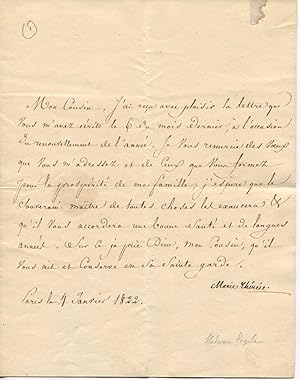 Mon Cousin. J'ai reçu avec plaisir la lettre que
Vous m'avez écrite le 6 du mois dernier, à l'occasion
du renouvellement de l'année. Je Vous remercie des Vœux
que Vous m'adressez et de Ceux que Vous formez
pour la prospérité de ma famille; j'espère que le
Souverain maître de toutes choses les exaucera &
qu'il Vous accordera une bonne Santé et de longues
années. Sur Ce je prie Dieu, Mon Cousin, qu'il
Vous ait et Conserve en Sa Sainte garde.
Marie Thérèse.
Paris le 4 Janvier 1822.